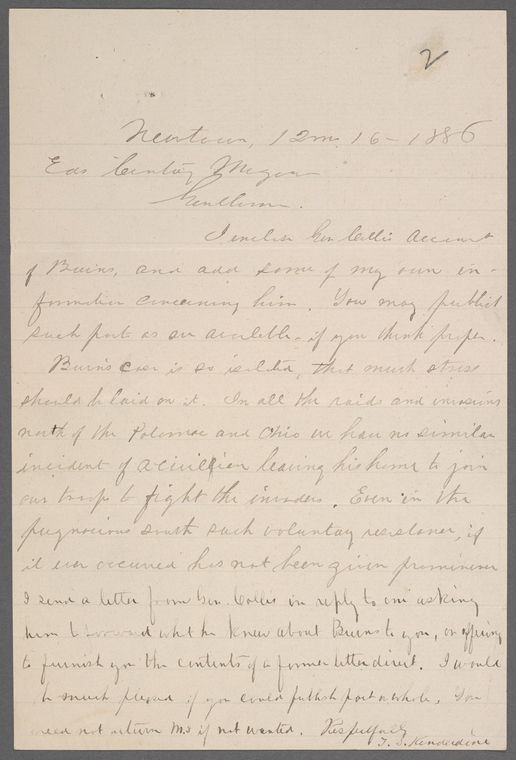 2
Newtown, 12m. 16 - 1886
Eds Century Magazine
Gentlemen.
I enclose Gen Collis Account
of Burns, and add some of my own in-
formation concerning him. You may publish
such parts as are available, if you think proper.
Burns case is so isolated, that much stress
should be laid on it. In all the raids and invasions
north of the Potomac and Ohio we have no similar
incident of a civilian leaving his home to join
our troops to fight the invaders. Even in the
pugnacious south such voluntary resistance, if
it ever occurred has not been given prominence
I send a letter from Gen. Collis in reply to one asking
him to forward what he knew about Burns to you, or offering
to furnish you the contents of a former letter direct. I would
be much pleased if you could publish part or whole. You
need not return M.S if not wanted. Respectfully
T. S. Kenderdine